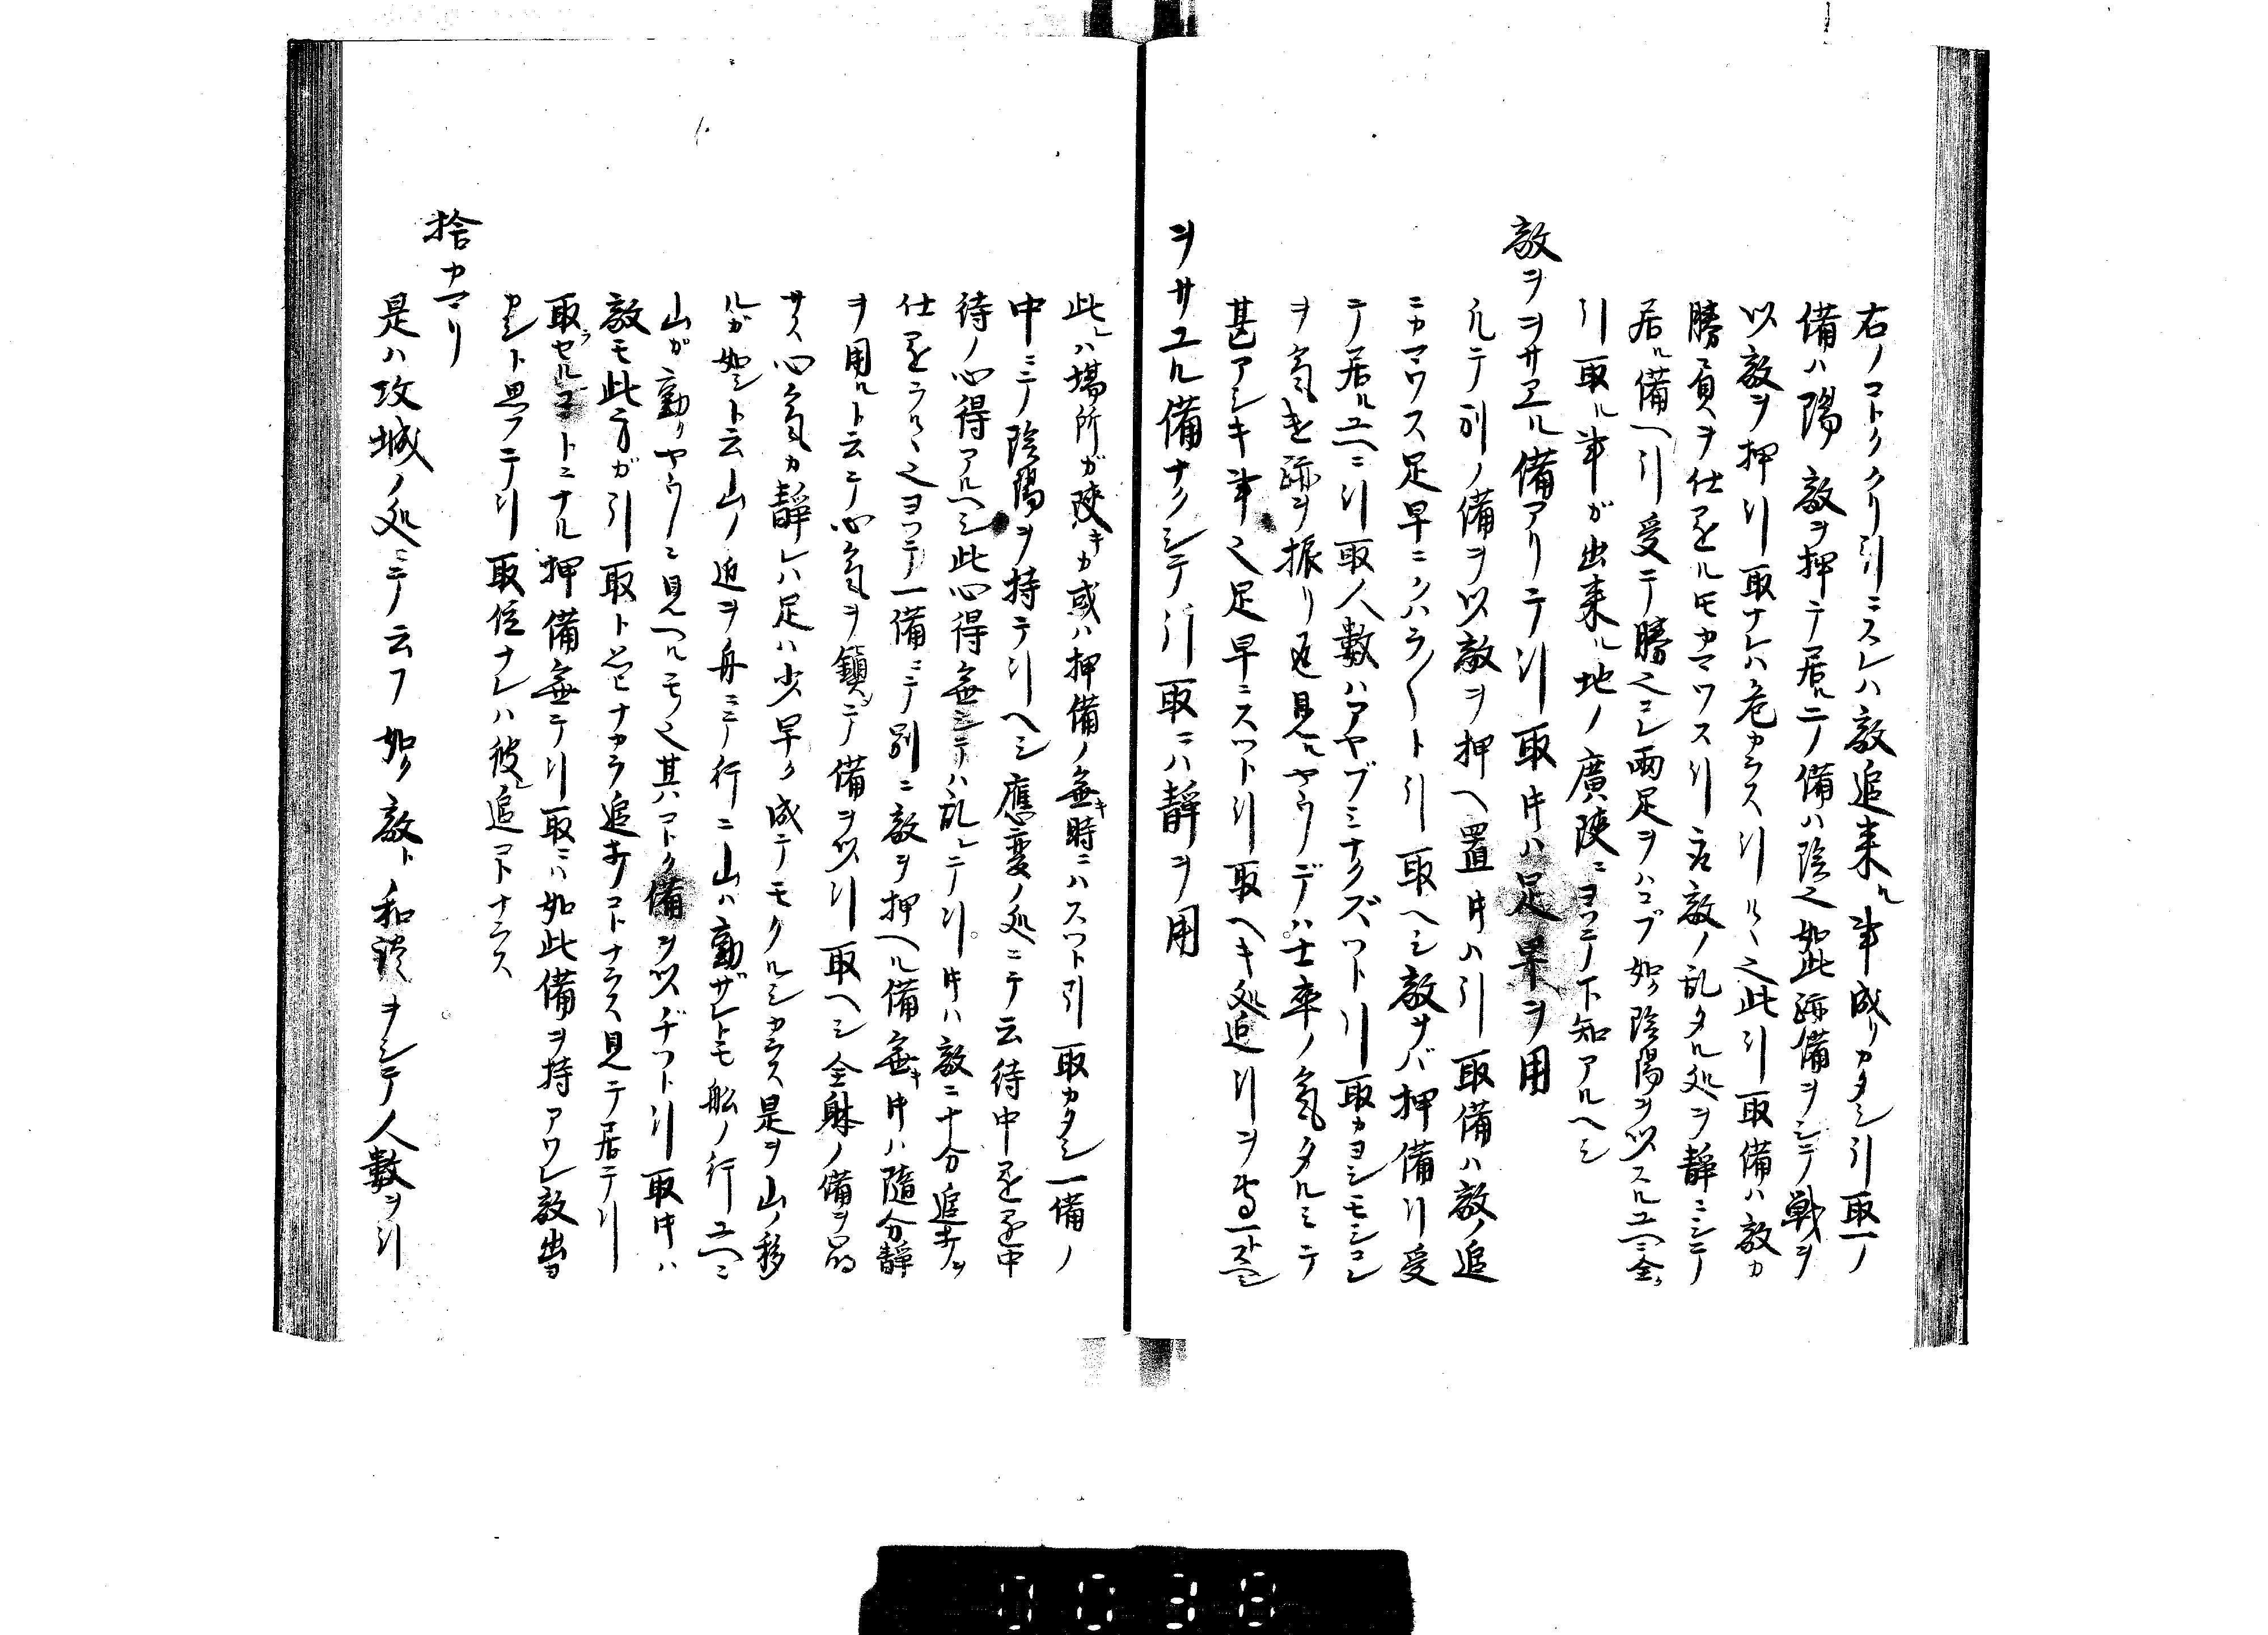 右ノコトククリ引ニスレハ敵追来ル事成リカタシ引取一ノ
備ハ陽敵ヲ押テ居ルニノ備ハ陰之如此跡備ヲシテ戦ヲ
以敵ヲ押引取ナレハ危カラス引ルヽ之此引取備ハ敵カ
勝負ヲ仕ヲルモカマワス引 敵ノ乱タル処ヲ静ニシテ
居ル備ヘ引受テ勝之コレ両足ヲハコブ如ク陰陽ヲ以スルユヘニ全ク
引取ル事が出来ル地ノ廣陜ニヨツテ下知アルヘシ
敵ヲヲサヱル備アリテ引取時ハ足早ヲ用
ルテ別ノ備ヲ以敵ヲ押ヘ置時ハ引取備ハ敵ノ追
ニカマワス足早ニクハラ／＼ト引取ヘシ敵サバ押備引受
テ居ルユヘニ引取人数ハアヤブミナクズツト引取カヨシモシコシ
ヲ気 跡ヲ振リ返見ルヤウデハ士卒ノ気タルミテ
甚アシキ事之足早ニスツト引取ヘキ処 引ヲ
ヲサユル備ナクシテ引取ニハ静ヲ用
此レハ場所が陜キカ或ハ押備ノ無キ時ニハスツト引取カタシ一備ノ
中ニテ陰陽ヲ持テ引ヘシ應変ノ処ニテ云待中 中
待ノ心得アルヘシ此心得無シテハ乱レテ引時ハ敵ニ十分追 ヲ
仕 ラルヽ之ヨツテ一備ニテ別ニ敵ヲ押ヘル備無キ時ハ随分静
ヲ用ルト云テ心気ヲ鎮メテ備ヲ以引取ヘシ全躰ノ備ヲ
サス心気カ静レハ足ハ少早ク成テモクルシカラス是ヲ山ノ移
ルガ如シト云山ノ辺ヲ舟ニテ行ニ山ハ動ザレトモ船ノ行ユヘニ
山が動クヤウニ見ヘルモノ之其コトク備ヲ以ヂツト引取時ハ
敵モ此方が引取ト思ヒナカラ追 コトナラス見テ居テ引
取ラセルコトニナル押備無テ引取ニハ如此備ヲ持アワレ敵出ヨ
カシト思フテ引取位ナレハ彼レ追コトナラス
捨カマリ
是ハ攻城ノ処ニテ云フ如ク敵ト和談ヲシテ人数ヲ引